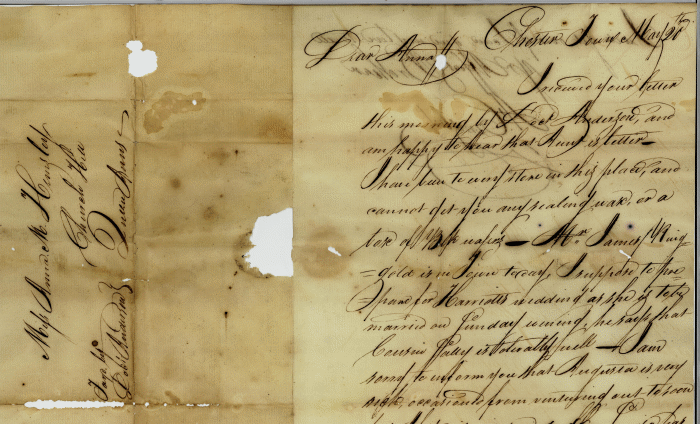 Miss Anna M. Hemsley
Church Hill
Queen Anns
Favd by
Doctr Anderson
Chester Town May 20th
Dear Anna
I received your letter
this morning by Doct Anderson, and
am happy to hear that Aunt is better—
I have been to every store in this place, and
cannot get you any sealing wax, or a
box of wafers — Mr James
=gold is in Town today, I suppose to pre
=pare for Harriotts wedding as she is to be
married on Sunday evening, he says that
Cousin Sally is tolerably well — I am
sorry to inform you that Augusta is very
sick, occasioned from venturing out to soon